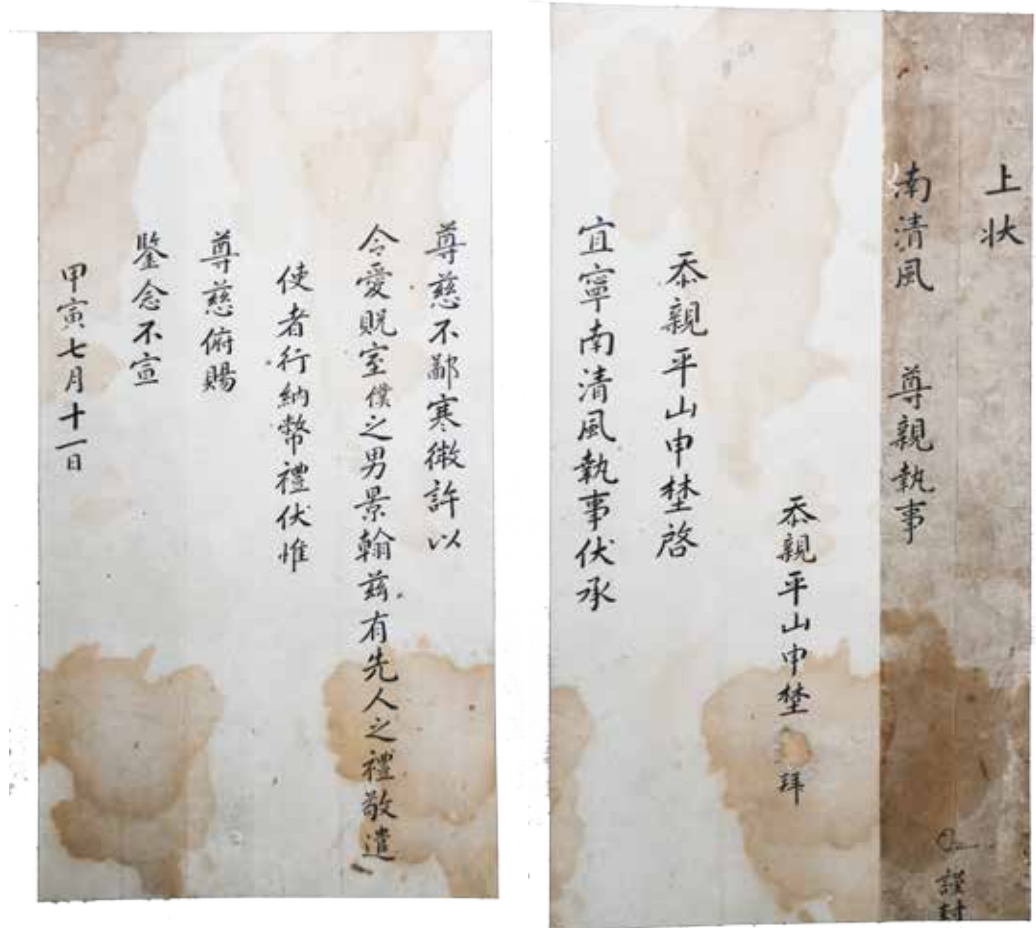 上状
南清風 尊親執事
謹封
忝親平山申埜 拜
忝親平山申埜啓
宜寧南清風執事伏承
尊慈不鄙寒微許以
令愛貺室僕之男景翰玆有先人之禮敬遣
使者行納幣禮伏惟
尊慈俯賜
鑒念不宣
甲寅七月十一日